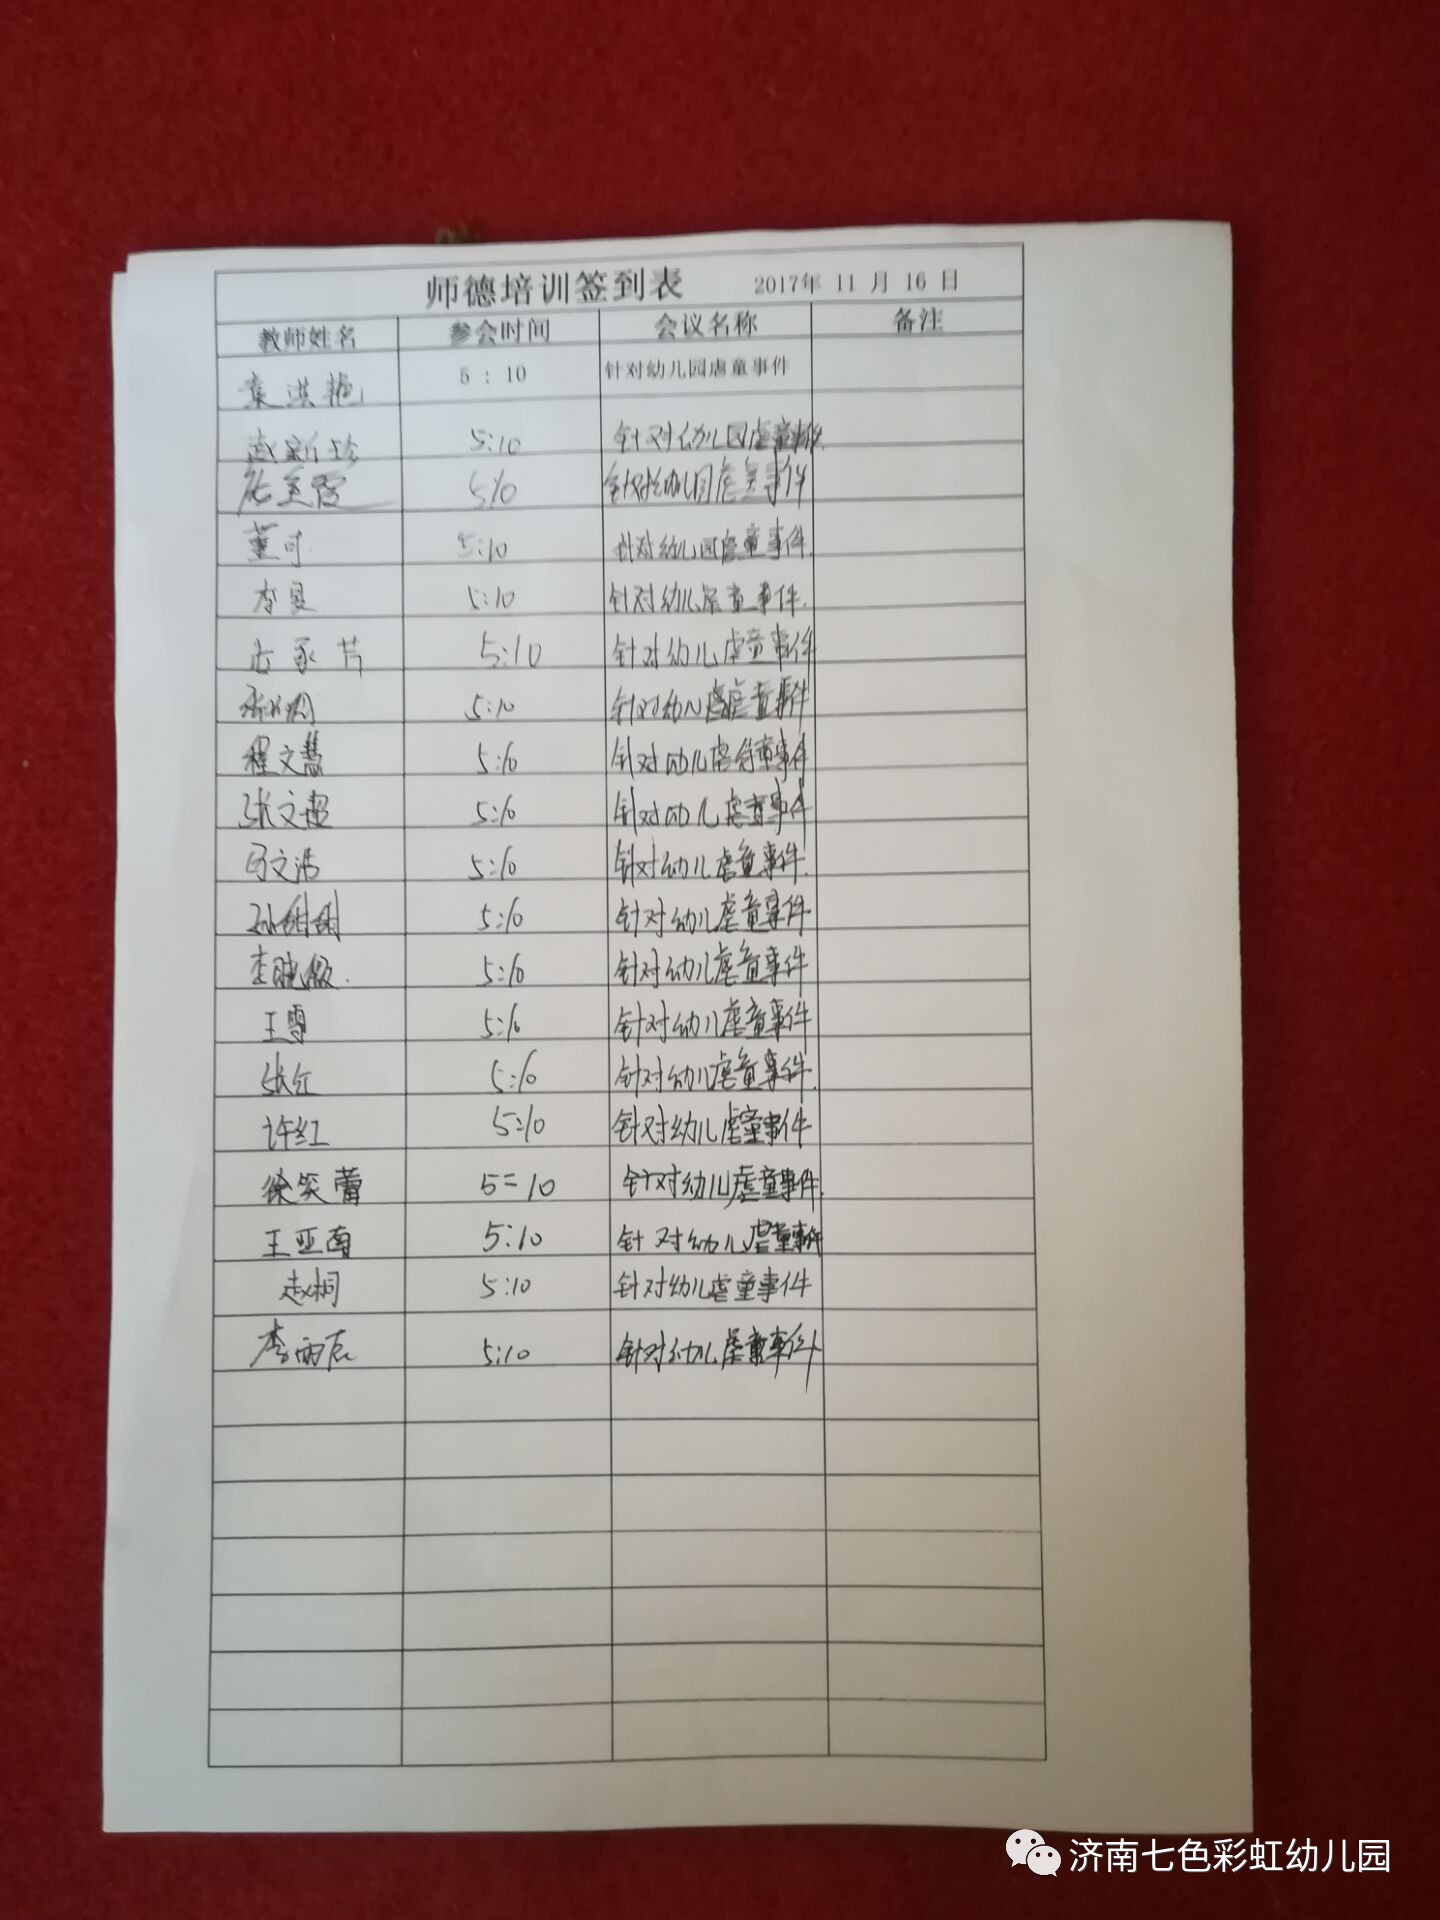 师德培训签到表 2017年 11 月 16 日
教师姓名 参会时间 会议名称 备注
袁洪艳 5：10 针对幼儿园虐童事件
赵新珍 5:10 针对幼儿园虐童事件.
5:10 针对幼儿园虐童事件
董可 5:10 针对幼儿园虐童事件.
李曼 5:10 针对幼儿虐童事件.
5:10 针对幼儿虐童事件
5:10 针对幼儿虐童事件
程文慧 5:10 针对幼儿虐待童事件
张文超 5:10 针对幼儿虐童事件
马文浩 5:10 针对幼儿虐童事件.
孙甜甜 5:10 针对幼儿虐童事件
李晓 5:10 针对幼儿虐童事件
王雪 5:10 针对幼儿虐童事件
张红 5:10 针对幼儿虐童事件.
许红 5:10 针对幼儿虐童事件
徐笑蕾 5=10 针对幼儿虐童事件.
王亚南 5:10 针对幼儿虐童事件
赵桐 5:10 针对幼儿虐童事件
李雨辰 5:10 针对幼儿虐童事件
济南七色彩虹幼儿园